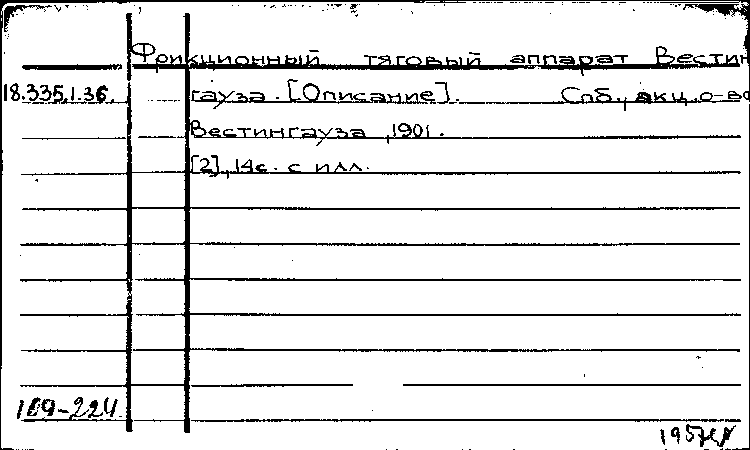 Фрикционный тяговый аппарат Вестин
18.335.1.36. гауза. [Описание]. Спб., акц. о-во
Вестингауза, 1901.
[2], 14с. с илл.
109-224